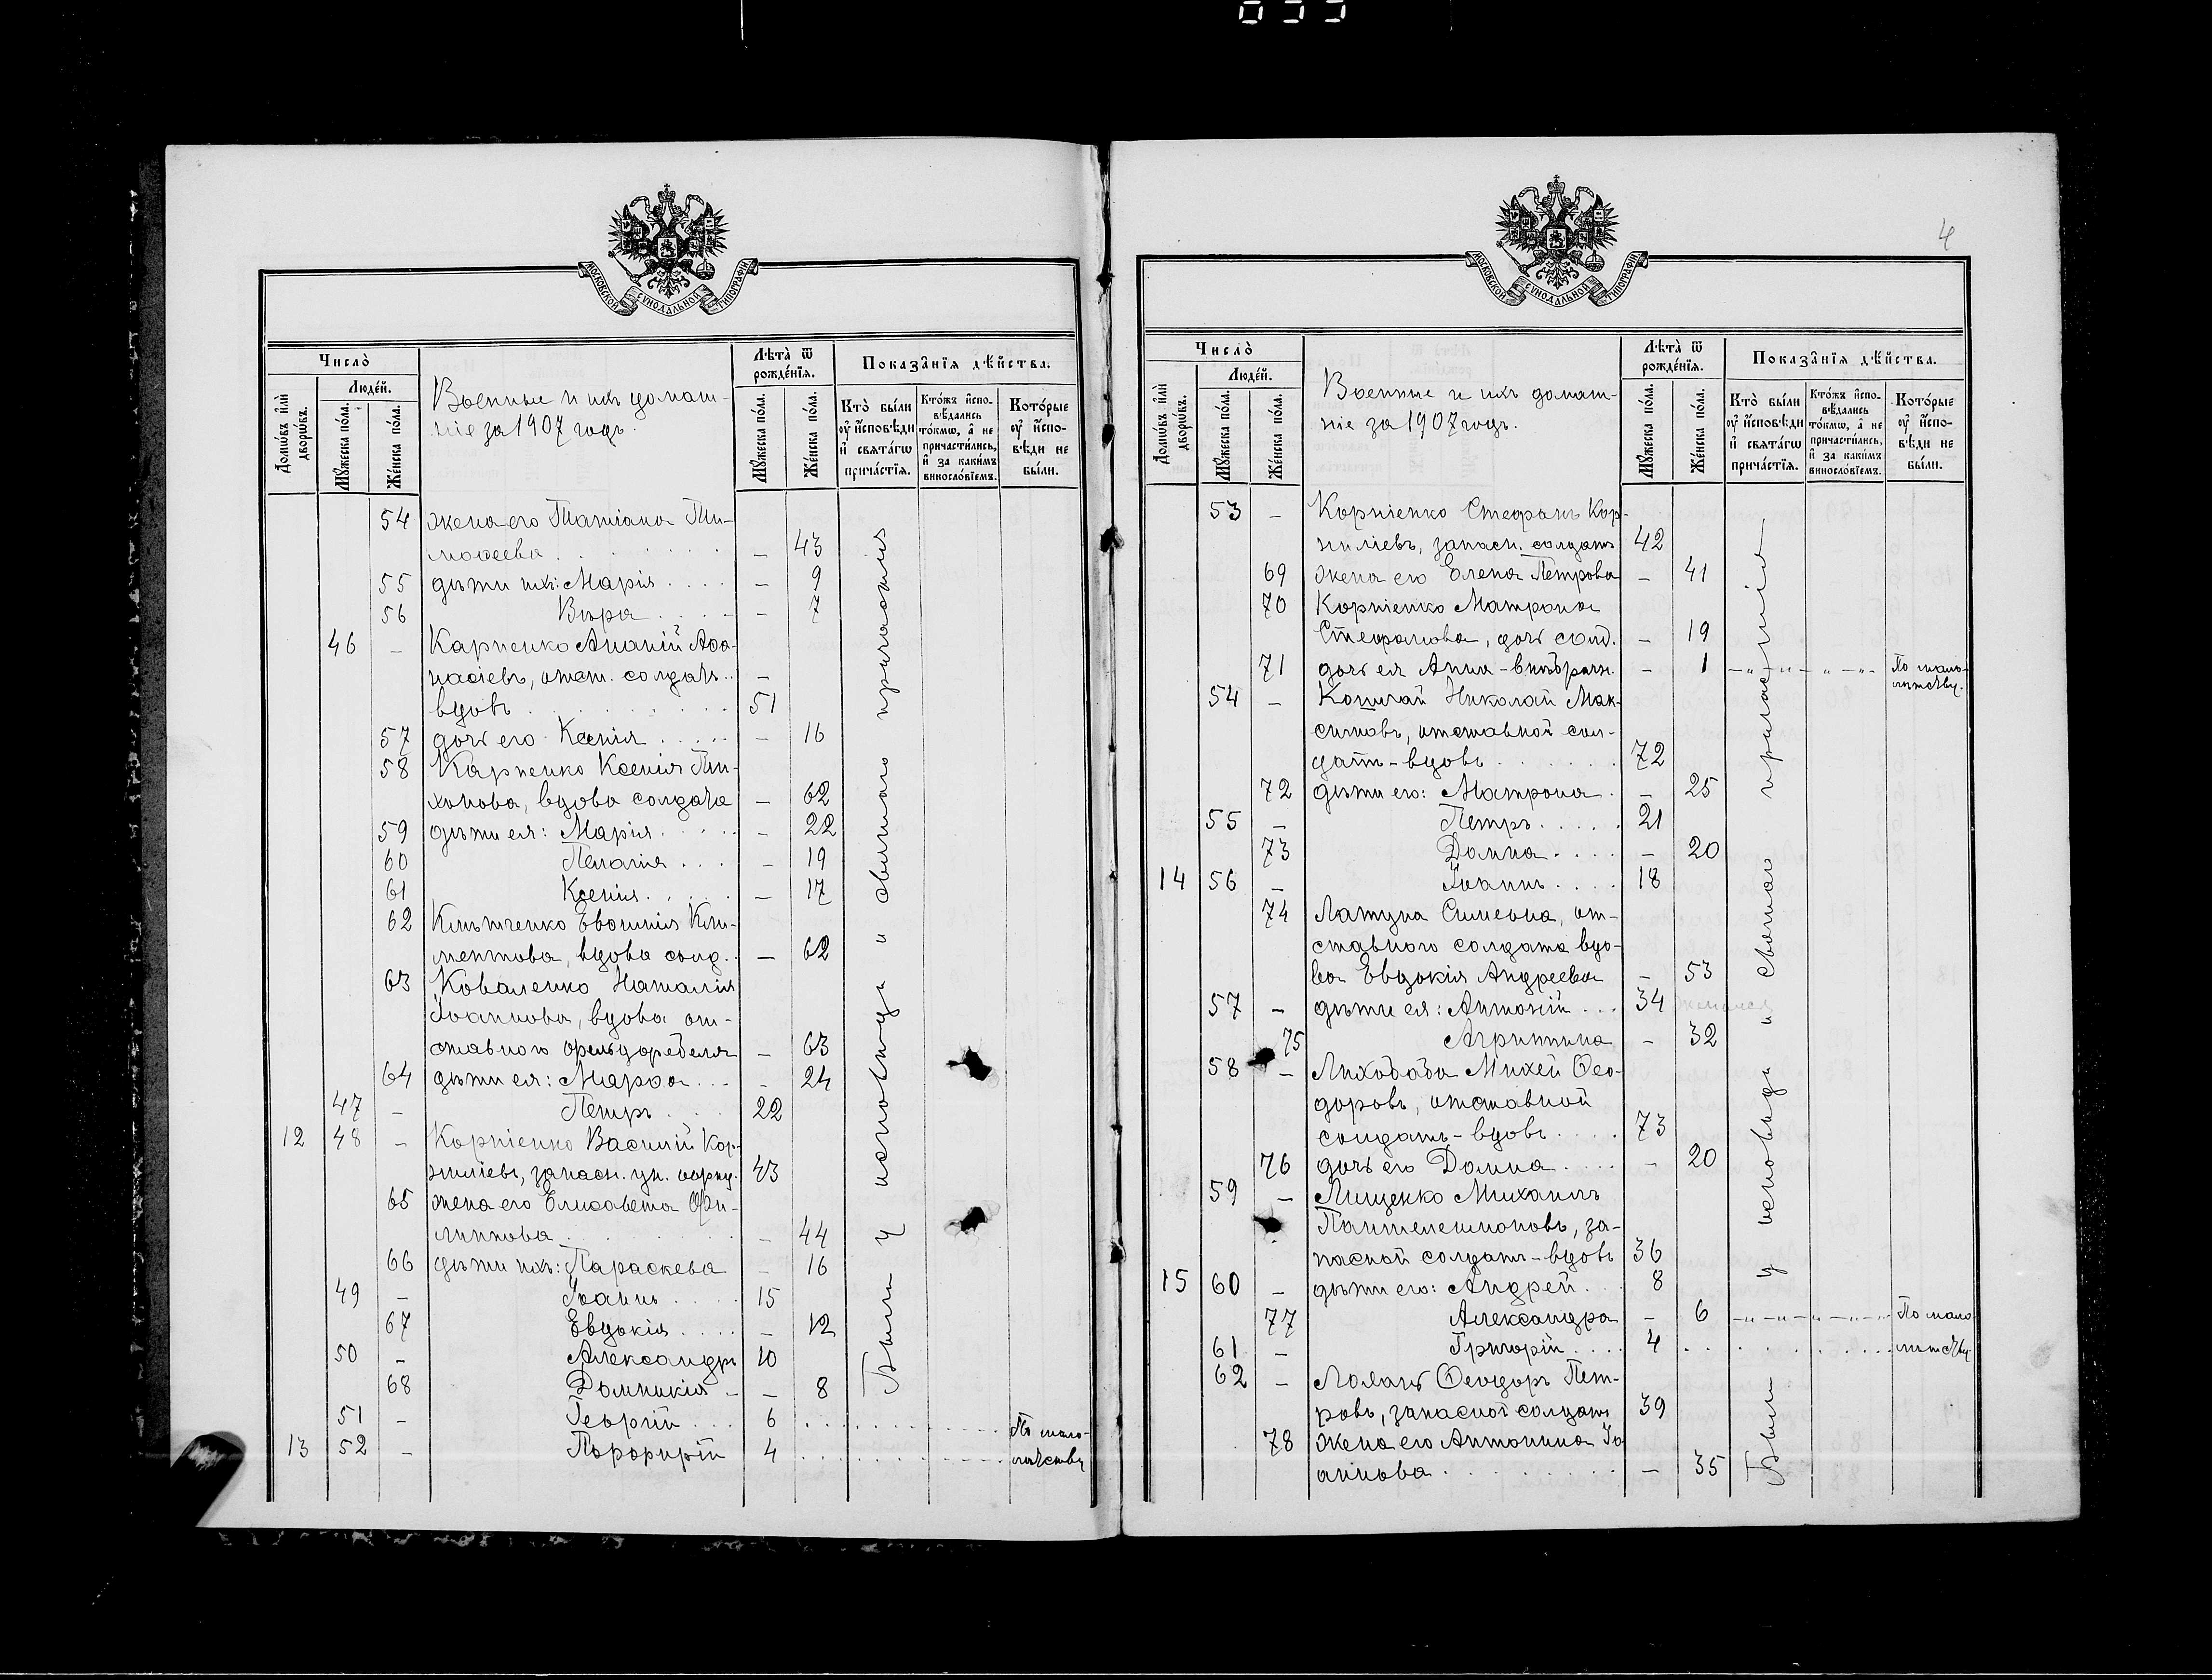 4
МОСКОВСКОЙ СѴНОДАЛЬНОЙ ТИПОГРАФІИ
Число̀
Домѡ́въ и҆лѝ дворѡ́въ.
Люде́й.
Мꙋ́жеска по́ла.
Же́нска по́ла.
Военные и ихъ домаш-
ніе за 1907 годъ.
Лѣ́та ѿ рожде́нїѧ.
Мꙋ́жеска по́ла.
Же́нска по́ла.
Показа̑нїѧ дѣ́йства.
Кто̀ бы́ли оу҆ и҆сповѣ́ди и҆ свѧта́гѡ прича́стїѧ.
Кто́жъ и҆сповѣ́дались то́кмѡ, а҆ не причасти́лись, и҆ за каки́мъ винословїемъ.
Кото́рые оу҆ и҆сповѣ́ди не бы́ли.
54 жена его Татіана Ти-
моѳеева . . . . — 43
55 дѣти ихъ: Марія . . . . — 9
56 Вѣра . . . . — 7
46 — Карпенко Ананій Аѳа-
насіевъ, отст. солдатъ . . —
вдовъ . . . . 51
57 дочь его Ксенія . . . . — 16
58 Карпенко Ксенія Ти-
хонова, вдова солдата — 62
59 дѣти ея: Марія . . . . — 22
60 Пелагія . . . — 19
61 Ксенія . . . . — 17
62 Клитченко Евѳимія Кли-
ментова, вдова солд. . — 62
63 Коваленко Наталія
Іоаннова, вдова от-
ставного фельдфебеля — 63
64 дѣти ея: Марѳа . . . — 24
47 — Петръ . . . 22
12 48 — Корніенко Василій Кор-
нилієвъ, запасн. ун. офиц. 43
65 жена его Елисавета Фи-
липпова . . . . — 44
66 дѣти ихъ: Параскева — 16
49 — Іоаннъ . . . . 15
67 Евдокія . . . . — 12
50 — Александръ 10
68 Домникія — — 8
51 — Георгій . . . 6 По мало-
13 52 — Порфирій 4 лѣтству
Были у исповѣди и святаго причастія
МОСКОВСКОЙ СѴНОДАЛЬНОЙ ТИПОГРАФІИ
Число̀
Домѡ́въ и҆лѝ дворѡ́въ.
Люде́й.
Мꙋ́жеска по́ла.
Же́нска по́ла.
Военные и ихъ домаш-
ніе за 1907 годъ.
Лѣ́та ѿ рожде́нїѧ.
Мꙋ́жеска по́ла.
Же́нска по́ла.
Показа̑нїѧ дѣ́йства.
Кто̀ бы́ли оу҆ и҆сповѣ́ди и҆ свѧта́гѡ прича́стїѧ.
Кто́жъ и҆сповѣ́дались то́кмѡ, а҆ не причасти́лись, и҆ за каки́мъ винословїемъ.
Кото́рые оу҆ и҆сповѣ́ди не бы́ли.
53 — Корніенко Стефанъ Кор-
ниліевъ, запасн. солдатъ 42
69 жена его Елена Петрова — 41
70 Корніенко Матрона
Стефанова, дочь солд. — 19
71 дочь ея Анна - внѣбрачн. — 1 По мало-
лѣтству.
54 — Николай Мак-
симовъ, отставной сол-
датъ - вдовъ . . . . 72
72 дѣти его: Матрона . — 25
55 — Петръ . . . . 21
73 Домна . . . . — 20
14 56 — Іоаннъ . . . . 18
74 Латуна Симеона, от-
ставного солдата вдо-
ва Евдокія Андреева — 53
57 — дѣти ея: Антоній . . . 34
75 Агриппина — 32
58 — Лиходѣда Михей Ѳео-
доровъ, отставной
солдатъ - вдовъ . . . . 73
76 дочь его Домна . . . . — 20
59 — Лищенко Михаилъ
Пантелеимоновъ, за-
пасной солдатъ - вдовъ 36
15 60 — дѣти его: Андрей . . . 8
77 Александра — 6 По мало-
61 — Григорій . . . . 4 лѣтству
62 — Ломачъ Ѳеодоръ Пет-
ровъ, запасной солдатъ 39
78 жена его Антонина Іо-
аннова . . . . — 35
Были у исповѣди и святаго причастія